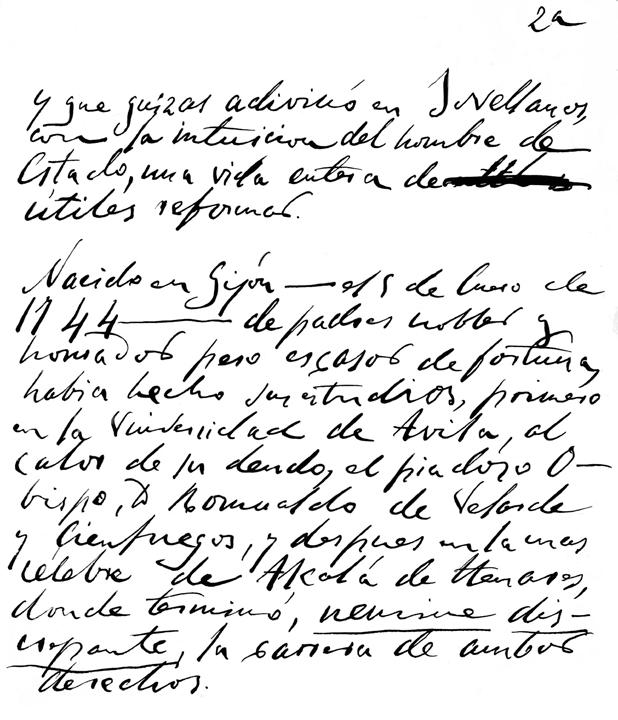 2a
y que quizas adivinó en Jovellanos,
con la intuicion del hombre de
Estado, una vida entera de
útiles reformas.
Nacido en Gijón — el 5 de Enero de
1744 — de padres nobles y
honrados pero escasos de fortuna,
habia hecho sus estudios, primero
en la Universidad de Avila, al
calor de su deudo, el piadoso O-
bispo, D Romualdo de Velarde
y Cienfuegos, y despues en la mas
célebre de Alcalá de Henares,
donde terminó, nemine dis-
crepante, la carrera de ambos
derechos.